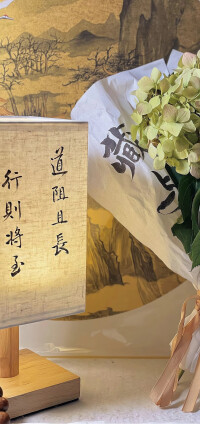 道阻且長
行則將至